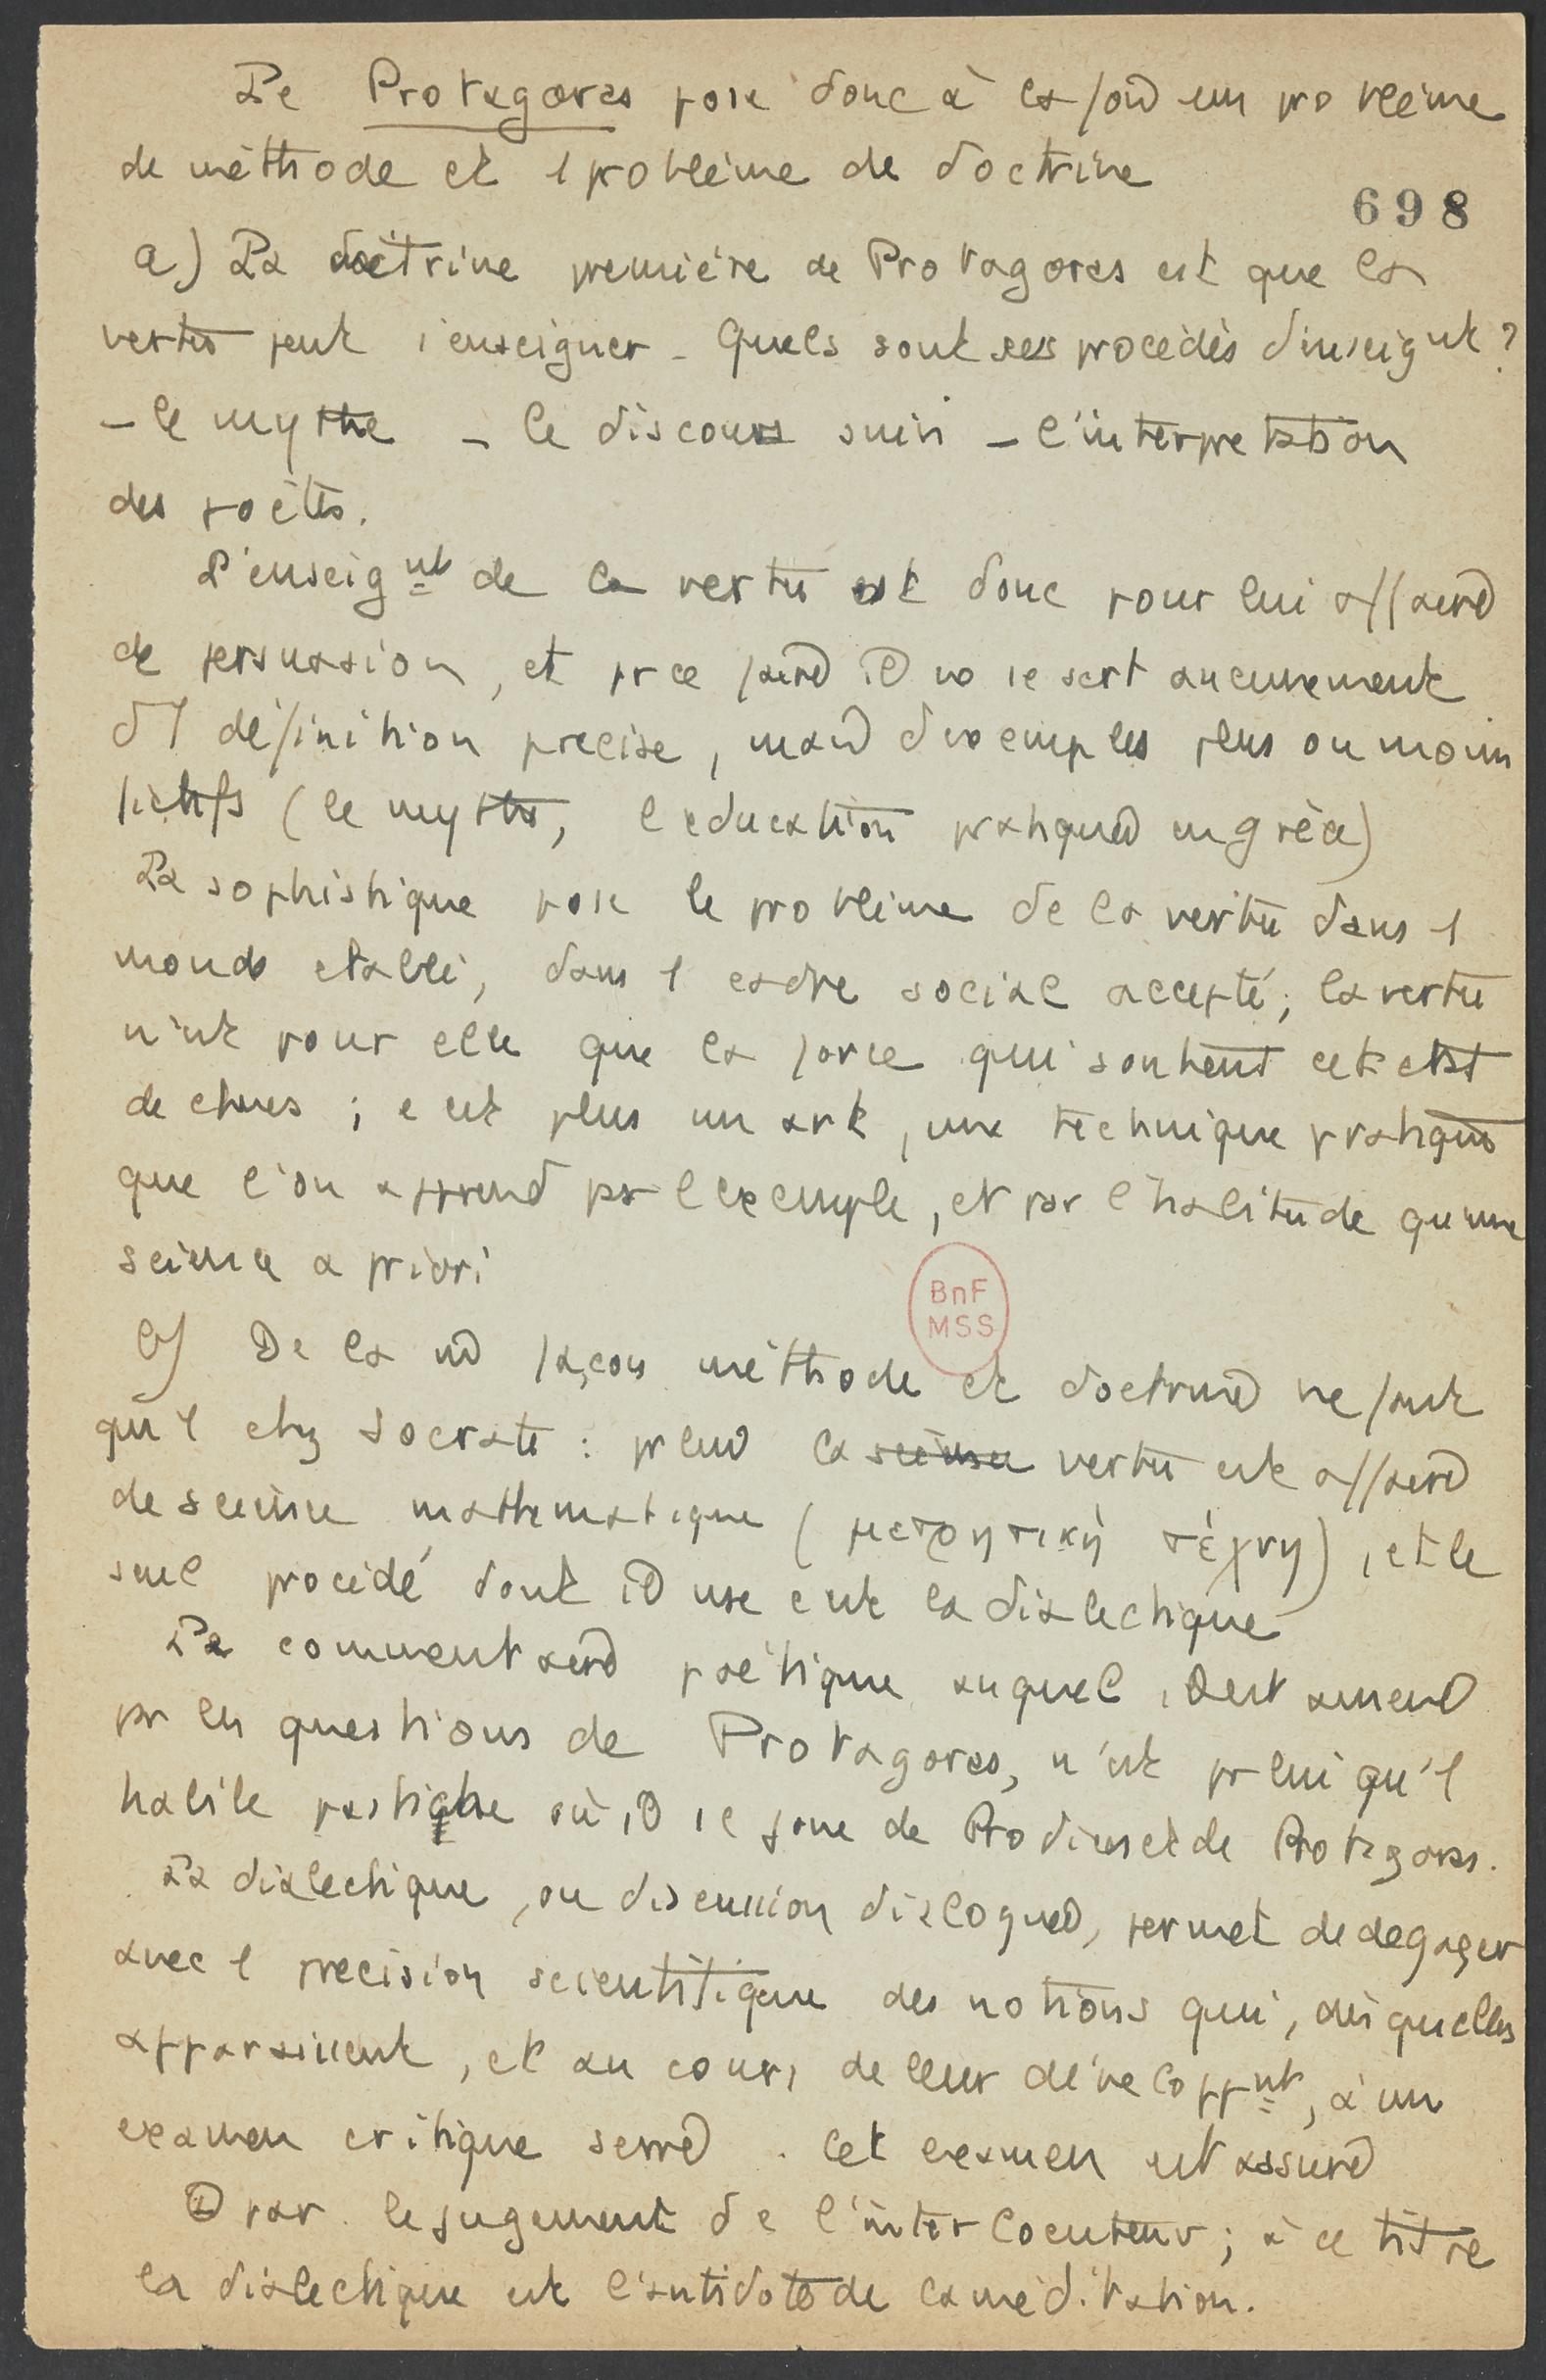 Le Protagoras pose donc à la fois un problème
de méthode et 1 problème de doctrine
698
a) La doctrine première de Protagoras est que la
vertu peut s'enseigner – Quels sont ses procédés d'enseignt ?
– le mythe – le discours suivi – l'interpretation
des poètes.
L'enseignt de la vertu est donc pour lui affaire
de persuasion, et pr ce faire il ne se sert aucunement
d'1 définition precise, mais d'exemples plus ou moins
fictifs (le mythe, l'education pratiquée en grèce)
La sophistique pose le problème de la vertu dans 1
monde etabli, dans 1 cadre social accepté ; la vertu
n'est pour elle que la force qui soutient cet etat
de choses ; c'est plus un art, une technique pratique
que l'on apprend par l'exemple, et par l'habitude qu'une
science a priori
b) De la m façon méthode et doctrine ne font
qu'1 chez Socrate : pr lui la science vertu est affaire
de science mathematique (μετρητική τέχνη), et le
seul procédé dont il use est la dialectique
Le commentaire poétique auquel il est amené
pr les questions de Protagoras, n'est pr lui qu'1
habile pastiche où il se joue de Prodicus et de Protagoras.
La dialectique, ou discussion dialoguée, permet de degager
avec 1 precision scientifique des notions qui, dès qu'elles
apparaissent, et au cours de leur développt, à un
examen critique serré. Cet examen est assuré
1) par le jugement de l'interlocuteur ; à ce titre
la dialectique est l'antidote de la méditation.
BnF
MSS